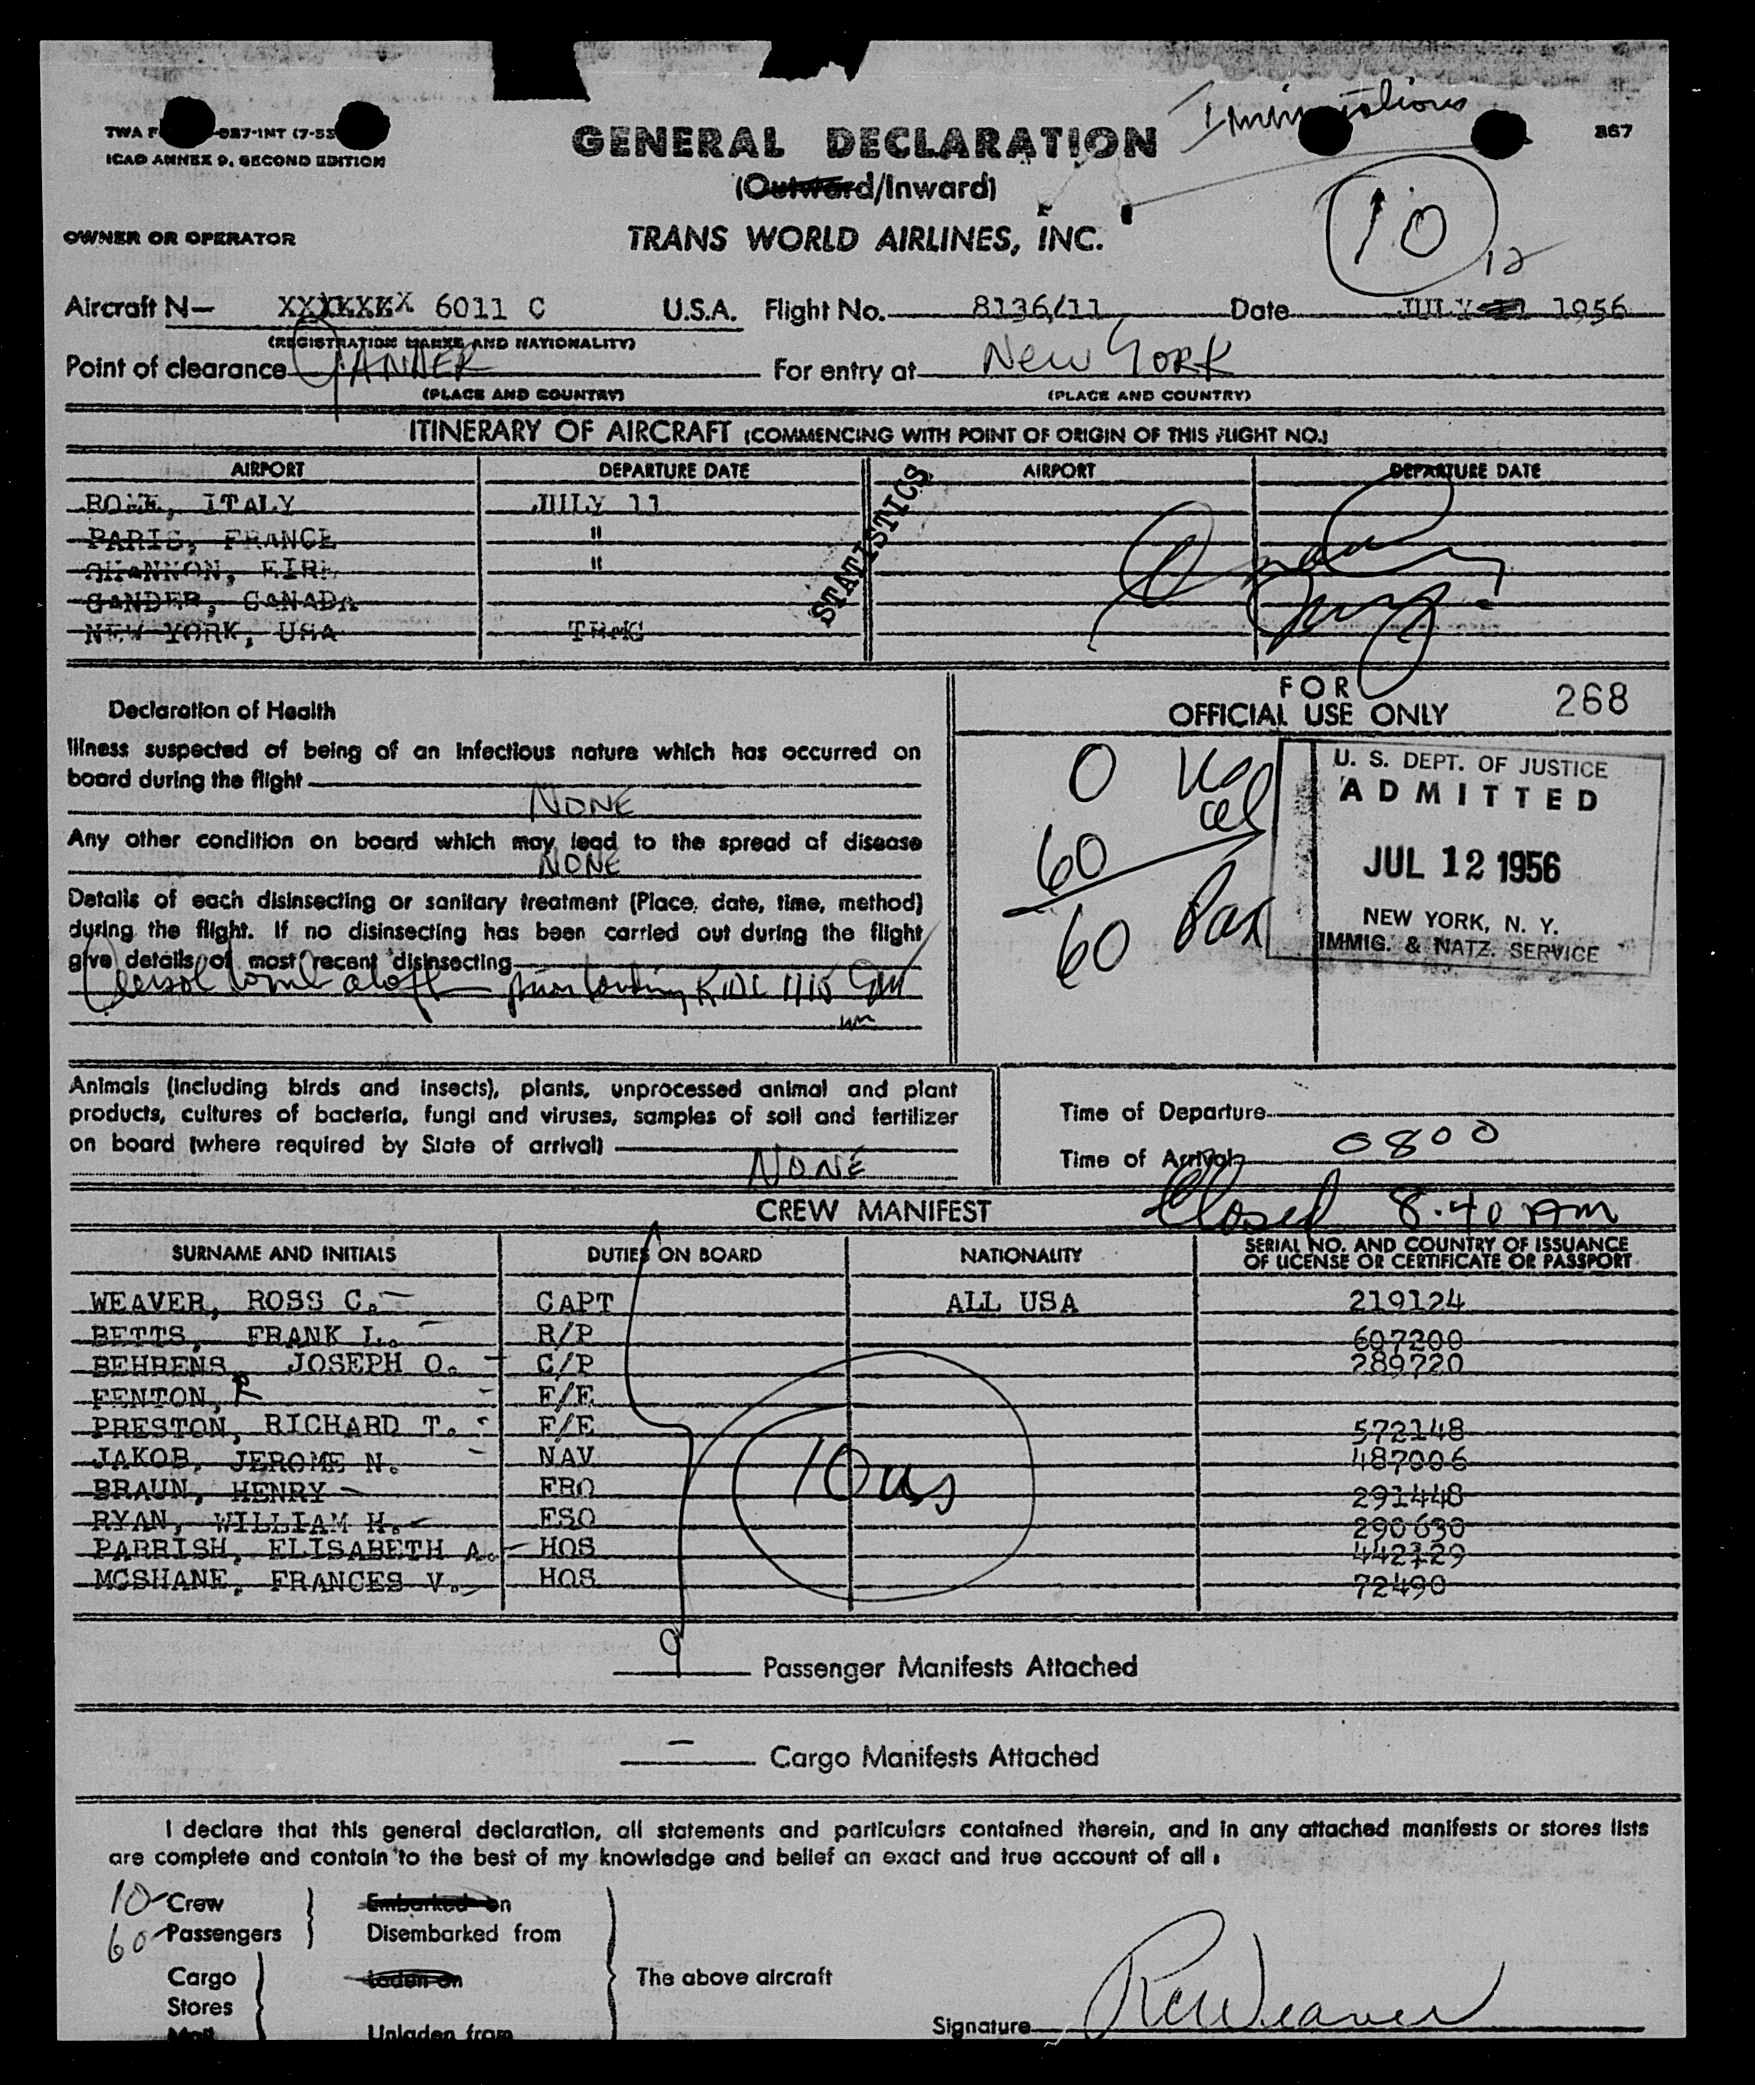 Immigrations
TWA F -027-INT (7-55
GENERAL DECLARATION
867
ICAO ANNEX 9, SECOND EDITION
(Outward/Inward)
10
OWNER OR OPERATOR
TRANS WORLD AIRLINES, INC.
12
Aircraft N— XXXXXXX 6011 C U.S.A. Flight No. 8136/11 Date JULY 1956
(REGISTRATION MARKS AND NATIONALITY)
Point of clearance GANDER For entry at New YORK
(PLACE AND COUNTRY) (PLACE AND COUNTRY)
ITINERARY OF AIRCRAFT (COMMENCING WITH POINT OF ORIGIN OF THIS FLIGHT NO.)
AIRPORT DEPARTURE DATE AIRPORT DEPARTURE DATE
ROME, ITALY JULY 11
PARIS, FRANCE "
SHANNON, EIRE "
GANDER, CANADA
NEW YORK, USA TRMG
STATISTICS
FOR
OFFICIAL USE ONLY 268
Declaration of Health
Illness suspected of being of an infectious nature which has occurred on
board during the flight
NONE
Any other condition on board which may lead to the spread of disease
NONE
Details of each disinsecting or sanitary treatment (Place, date, time, method)
during the flight. If no disinsecting has been carried out during the flight
give details of most recent disinsecting
Aerosol bomb aloft prior landing KIDL 1115 GMT
0
60
60 Pax
U. S. DEPT. OF JUSTICE
ADMITTED
JUL 12 1956
NEW YORK, N. Y.
IMMIG. & NATZ. SERVICE
Animals (including birds and insects), plants, unprocessed animal and plant
products, cultures of bacteria, fungi and viruses, samples of soil and fertilizer
on board (where required by State of arrival)
NONE
Time of Departure
Time of Arrival 0800
Closed 8.40 Am
CREW MANIFEST
SURNAME AND INITIALS DUTIES ON BOARD NATIONALITY SERIAL NO. AND COUNTRY OF ISSUANCE
OF LICENSE OR CERTIFICATE OR PASSPORT
WEAVER, ROSS C. CAPT ALL USA 219124
BETTS, FRANK L. R/P 607200
BEHRENS, JOSEPH O. C/P 289720
FENTON, F/E
PRESTON, RICHARD T. F/E 572148
JAKOB, JEROME N. NAV 487006
BRAUN, HENRY FRO 291448
RYAN, WILLIAM H. FSO 290630
PARRISH, ELISABETH A. HOS 442729
MCSHANE, FRANCES V. HOS 72490
10 us
9 Passenger Manifests Attached
— Cargo Manifests Attached
I declare that this general declaration, all statements and particulars contained therein, and in any attached manifests or stores lists
are complete and contain to the best of my knowledge and belief an exact and true account of all:
10 Crew Embarked on
60 Passengers Disembarked from
Cargo Laden on The above aircraft
Stores
Mail Unladen from
Signature RCWeaver